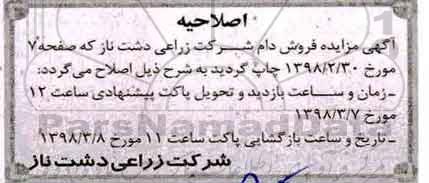 اصلاحیه
آگهی مزایده فروش دام شرکت زراعی دشت ناز که صفحه ۷
مورخ ۱۳۹۸/۲/۳۰ چاپ گردید به شرح ذیل اصلاح می‌گردد:
ـ زمان و ساعت بازدید و تحویل پاکت پیشنهادی ساعت ۱۲
مورخ ۱۳۹۸/۳/۷
ـ تاریخ و ساعت بازگشایی پاکت ساعت ۱۱ مورخ ۱۳۹۸/۳/۸
شرکت زراعی دشت ناز
ParsNamadData